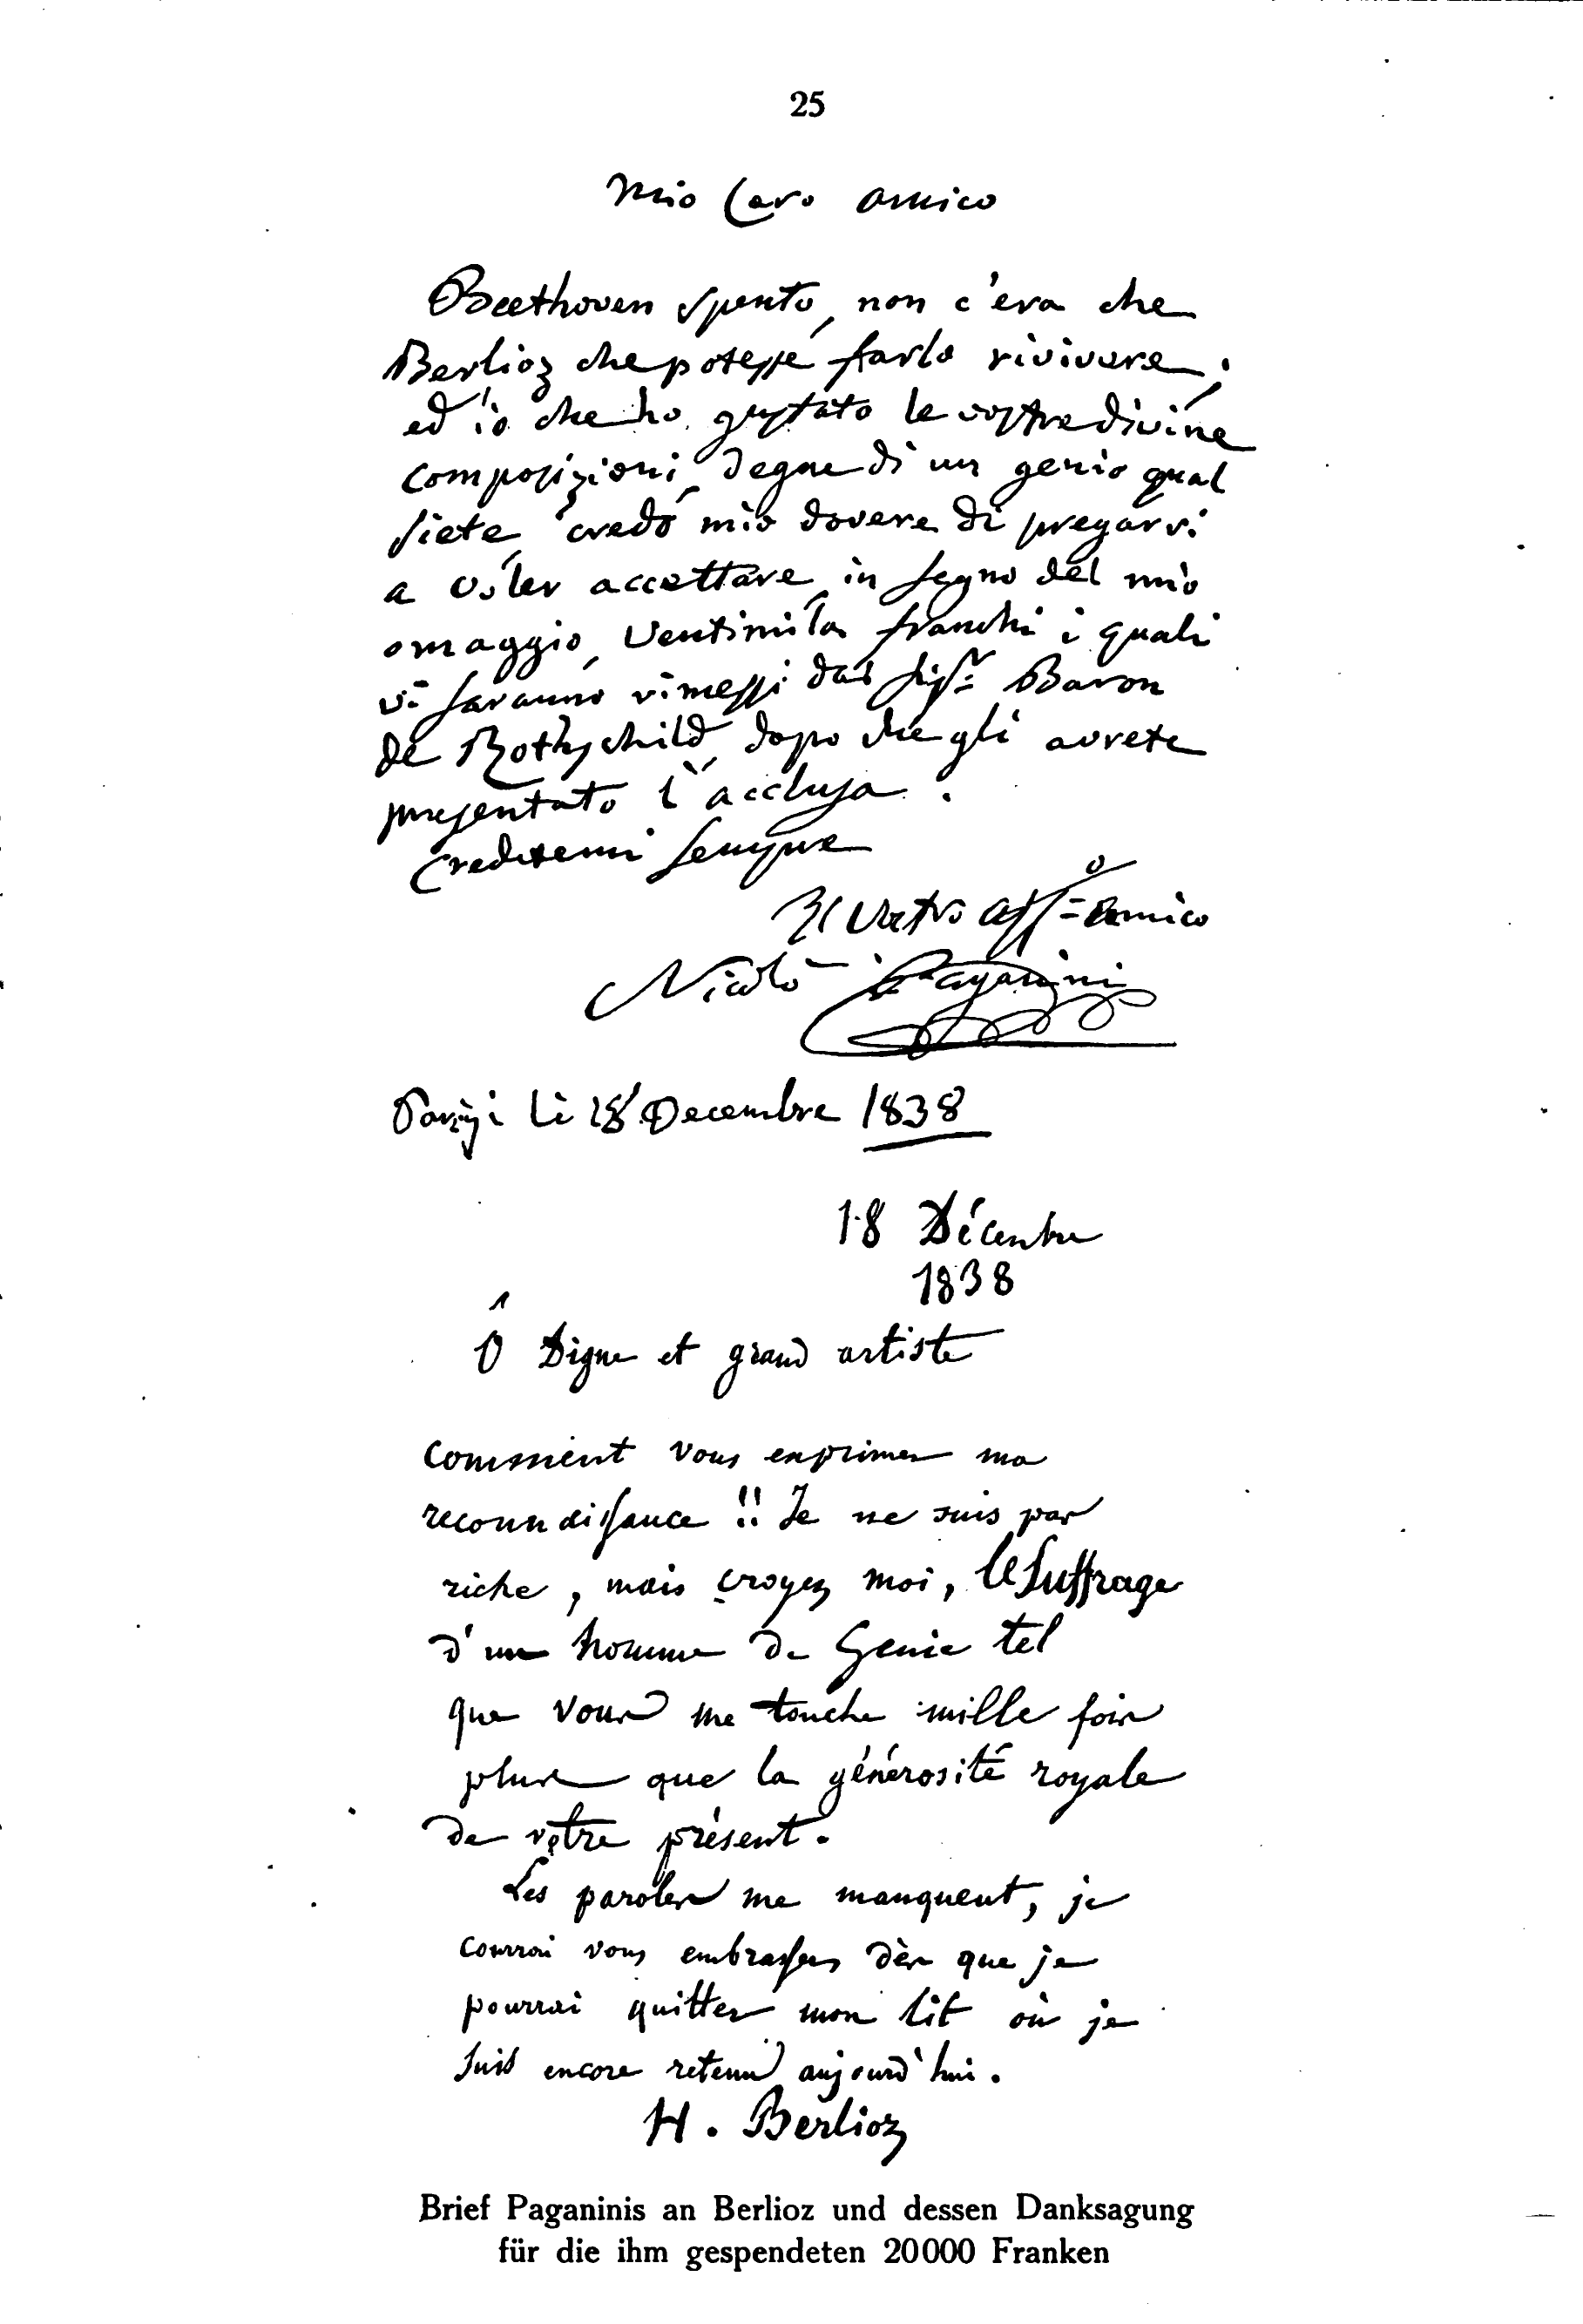 25
Mio Caro amico
Beethoven spento, non c'era che
Berlioz che potesse farlo rivivere;
ed io che ho gustato le vostre divine
composizioni, degne di un genio qual
siete, credo mio dovere di pregarvi
a voler accettare, in segno del mio
omaggio, ventimila franchi i quali
vi saranno rimessi dal Sigr. Baron
de Rothschild, dopo che gli avrete
presentato l'acclusa.
Credetemi sempre
Il Vostro affo= amico
Nicolò Paganini
Parigi li 18 Decembre 1838
18 Décembre
1838
Ô Digne et grand artiste
Comment vous exprimer ma
reconnaissance!! Je ne suis pas
riche, mais croyez moi, le suffrage
d'un homme de Génie tel
que vous me touche mille fois
plus que la générosité royale
de vôtre présent.
Les paroles me manquent, je
courrai vous embrasser dès que je
pourrai quitter mon lit où je
suis encore retenu aujourd'hui.
H. Berlioz
Brief Paganinis an Berlioz und dessen Danksagung
für die ihm gespendeten 20000 Franken